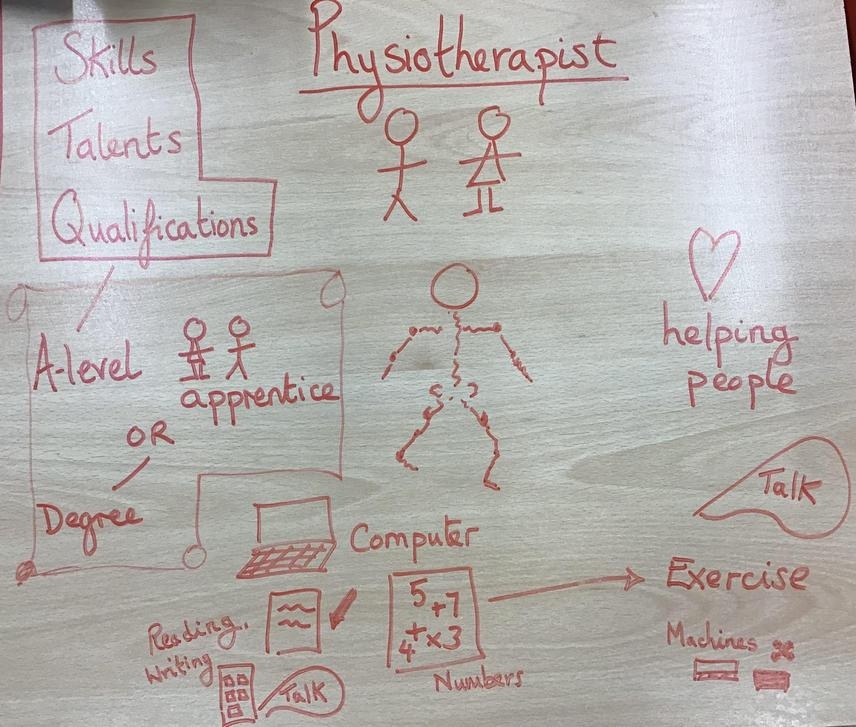 Physiotherapist
Skills
Talents
Qualifications
helping
people
A-level
apprentice
OR
Degree
Talk
Computer
Exercise
Reading.
Writing
5 +7
4 + x3
Numbers
Machines
Talk